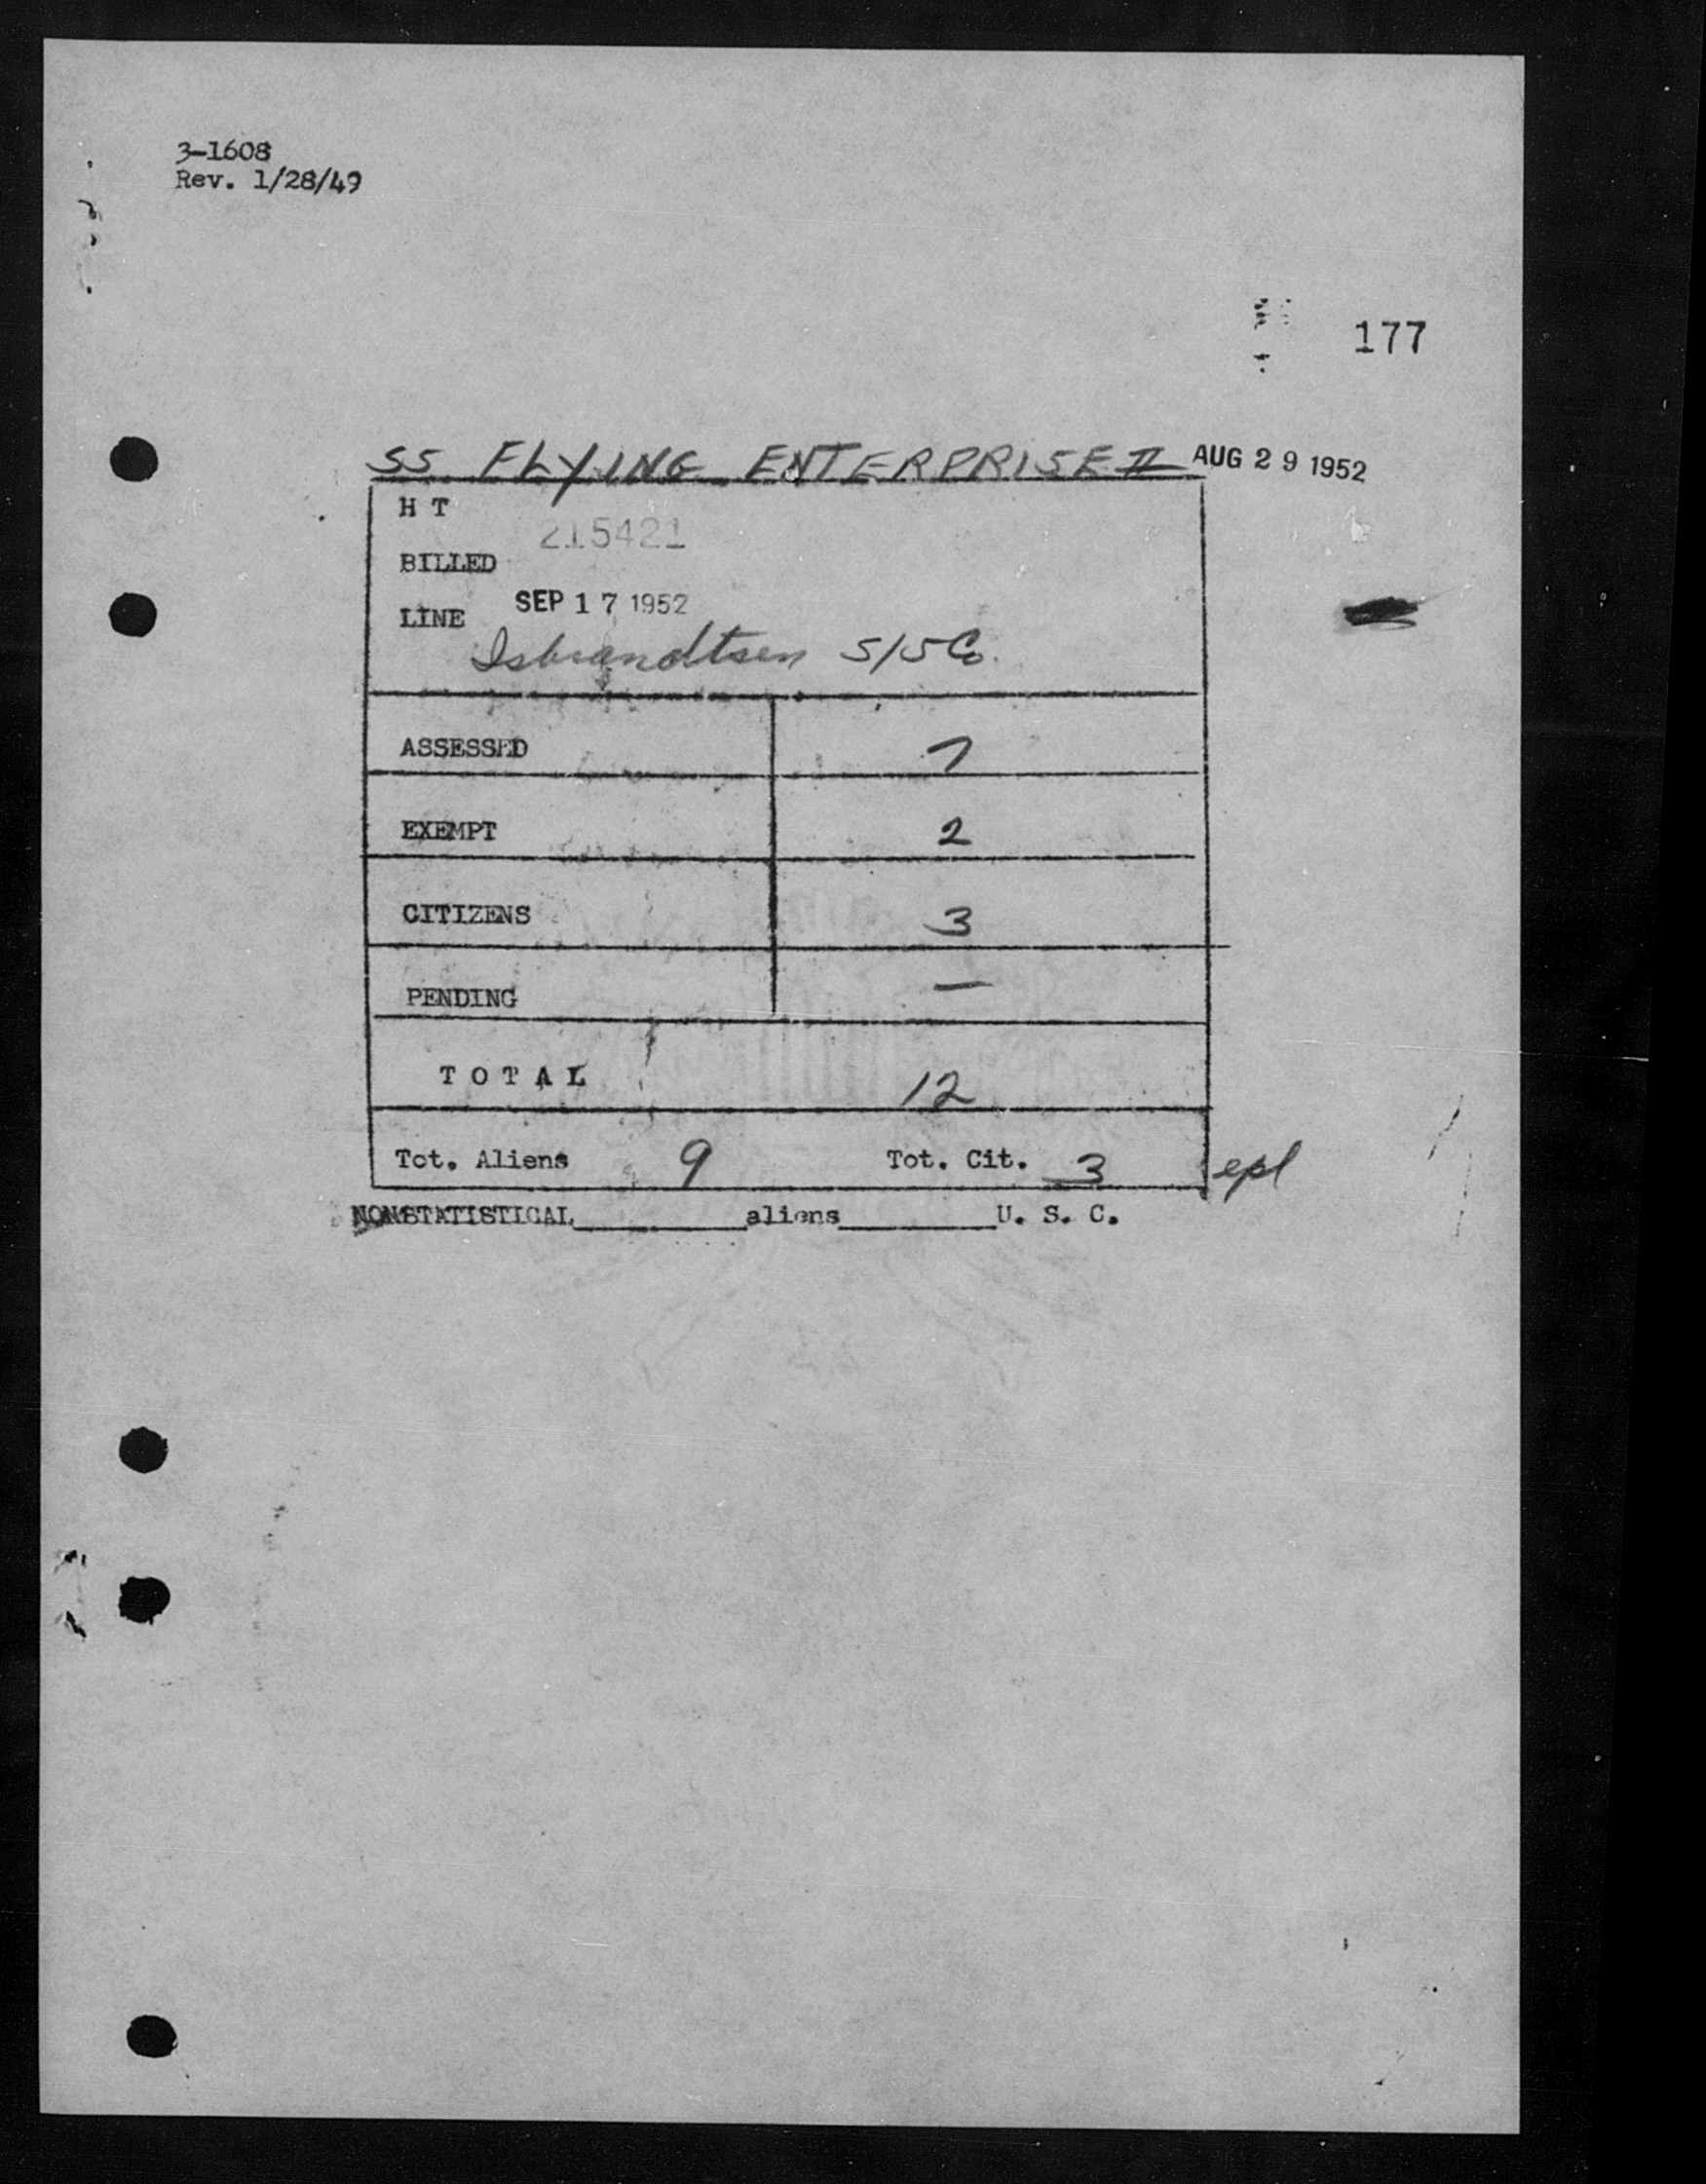 3-1608
Rev. 1/28/49
177
SS FLYING ENTERPRISE II AUG 29 1952
H T
215421
BILLED
SEP 17 1952
LINE
Isbrandtsen S/S Co.
ASSESSED 7
EXEMPT 2
CITIZENS 3
PENDING —
TOTAL 12
Tot. Aliens 9 Tot. Cit. 3 epl
NONSTATISTICAL________aliens________U. S. C.